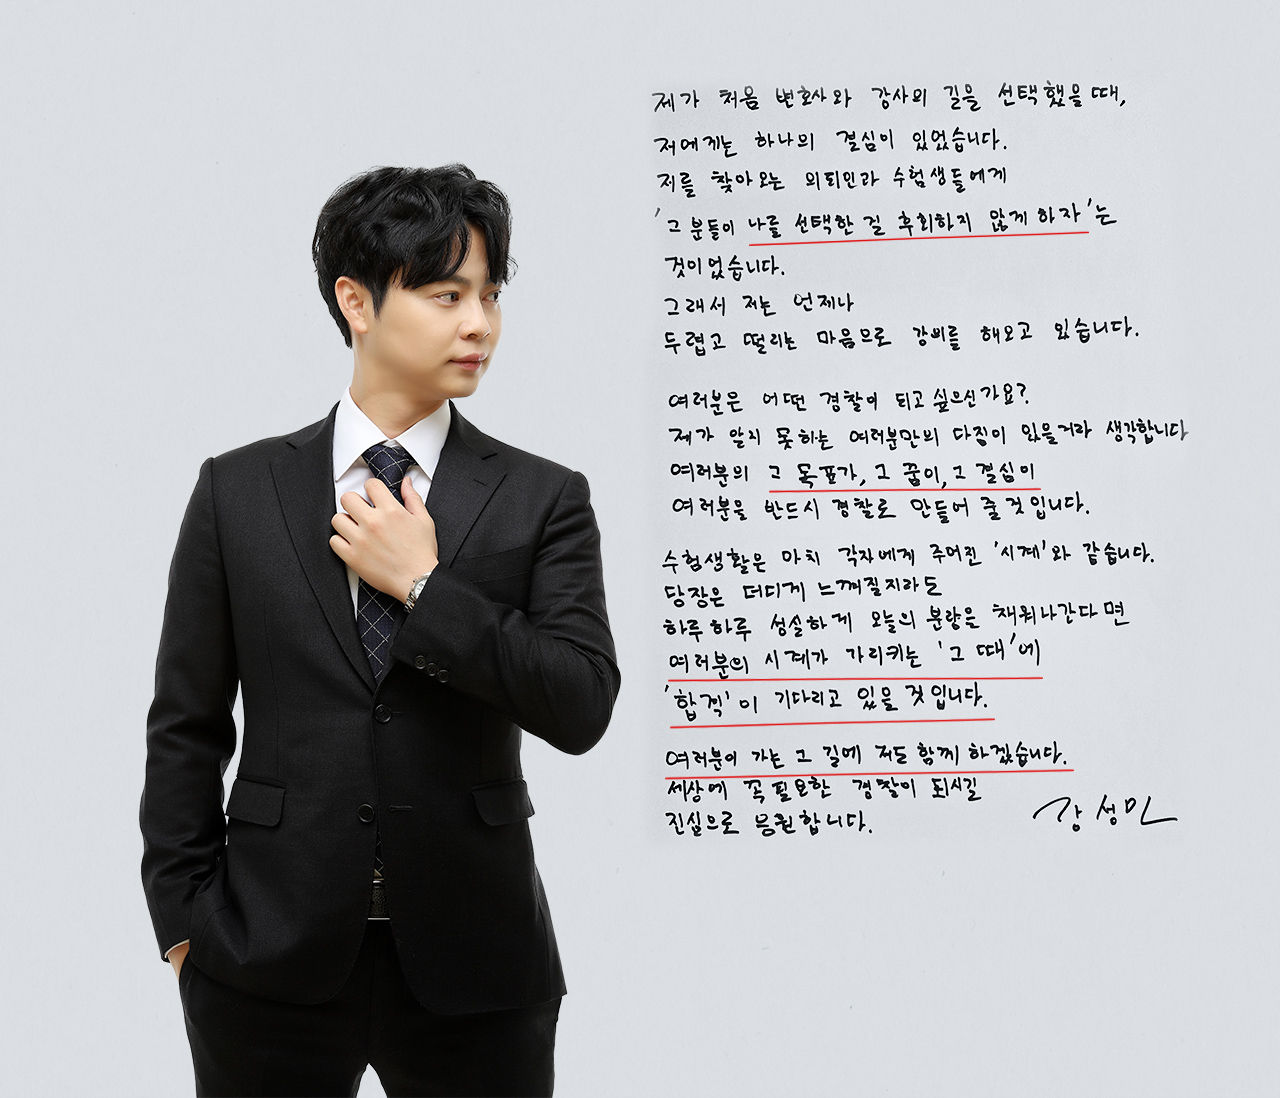 제가 처음 변호사와 강사의 길을 선택했을때,
저에게는 하나의 결심이 있었습니다.
저를 찾아오는 의뢰인과 수험생들에게
'그 분들이 나를 선택한 걸 후회하지 않게 하자'는
것이었습니다.
그래서 저는 언제나
두렵고 떨리는 마음으로 강의를 해오고 있습니다.
여러분은 어떤 경찰이 되고 싶으신가요?
제가 알지 못하는 여러분만의 다짐이 있을거라 생각합니다
여러분의 그 목표가, 그 꿈이, 그 결심이
여러분을 반드시 경찰로 만들어 줄 것입니다.
수험생활은 마치 각자에게 주어진 '시계'와 같습니다.
당장은 더디게 느껴질지라도
하루하루 성실하게 오늘의 분량을 채워나간다면
여러분의 시계가 가리키는 '그 때'에
'합격'이 기다리고 있을 것입니다.
여러분이 가는 그 길에 저도 함께 하겠습니다.
세상에 꼭 필요한 경찰이 되시길
진심으로 응원합니다.
강성민